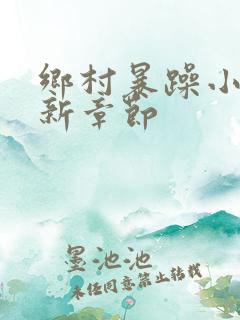 鄉村暴躁小
新章節
墨池池
未經同意禁止轉載